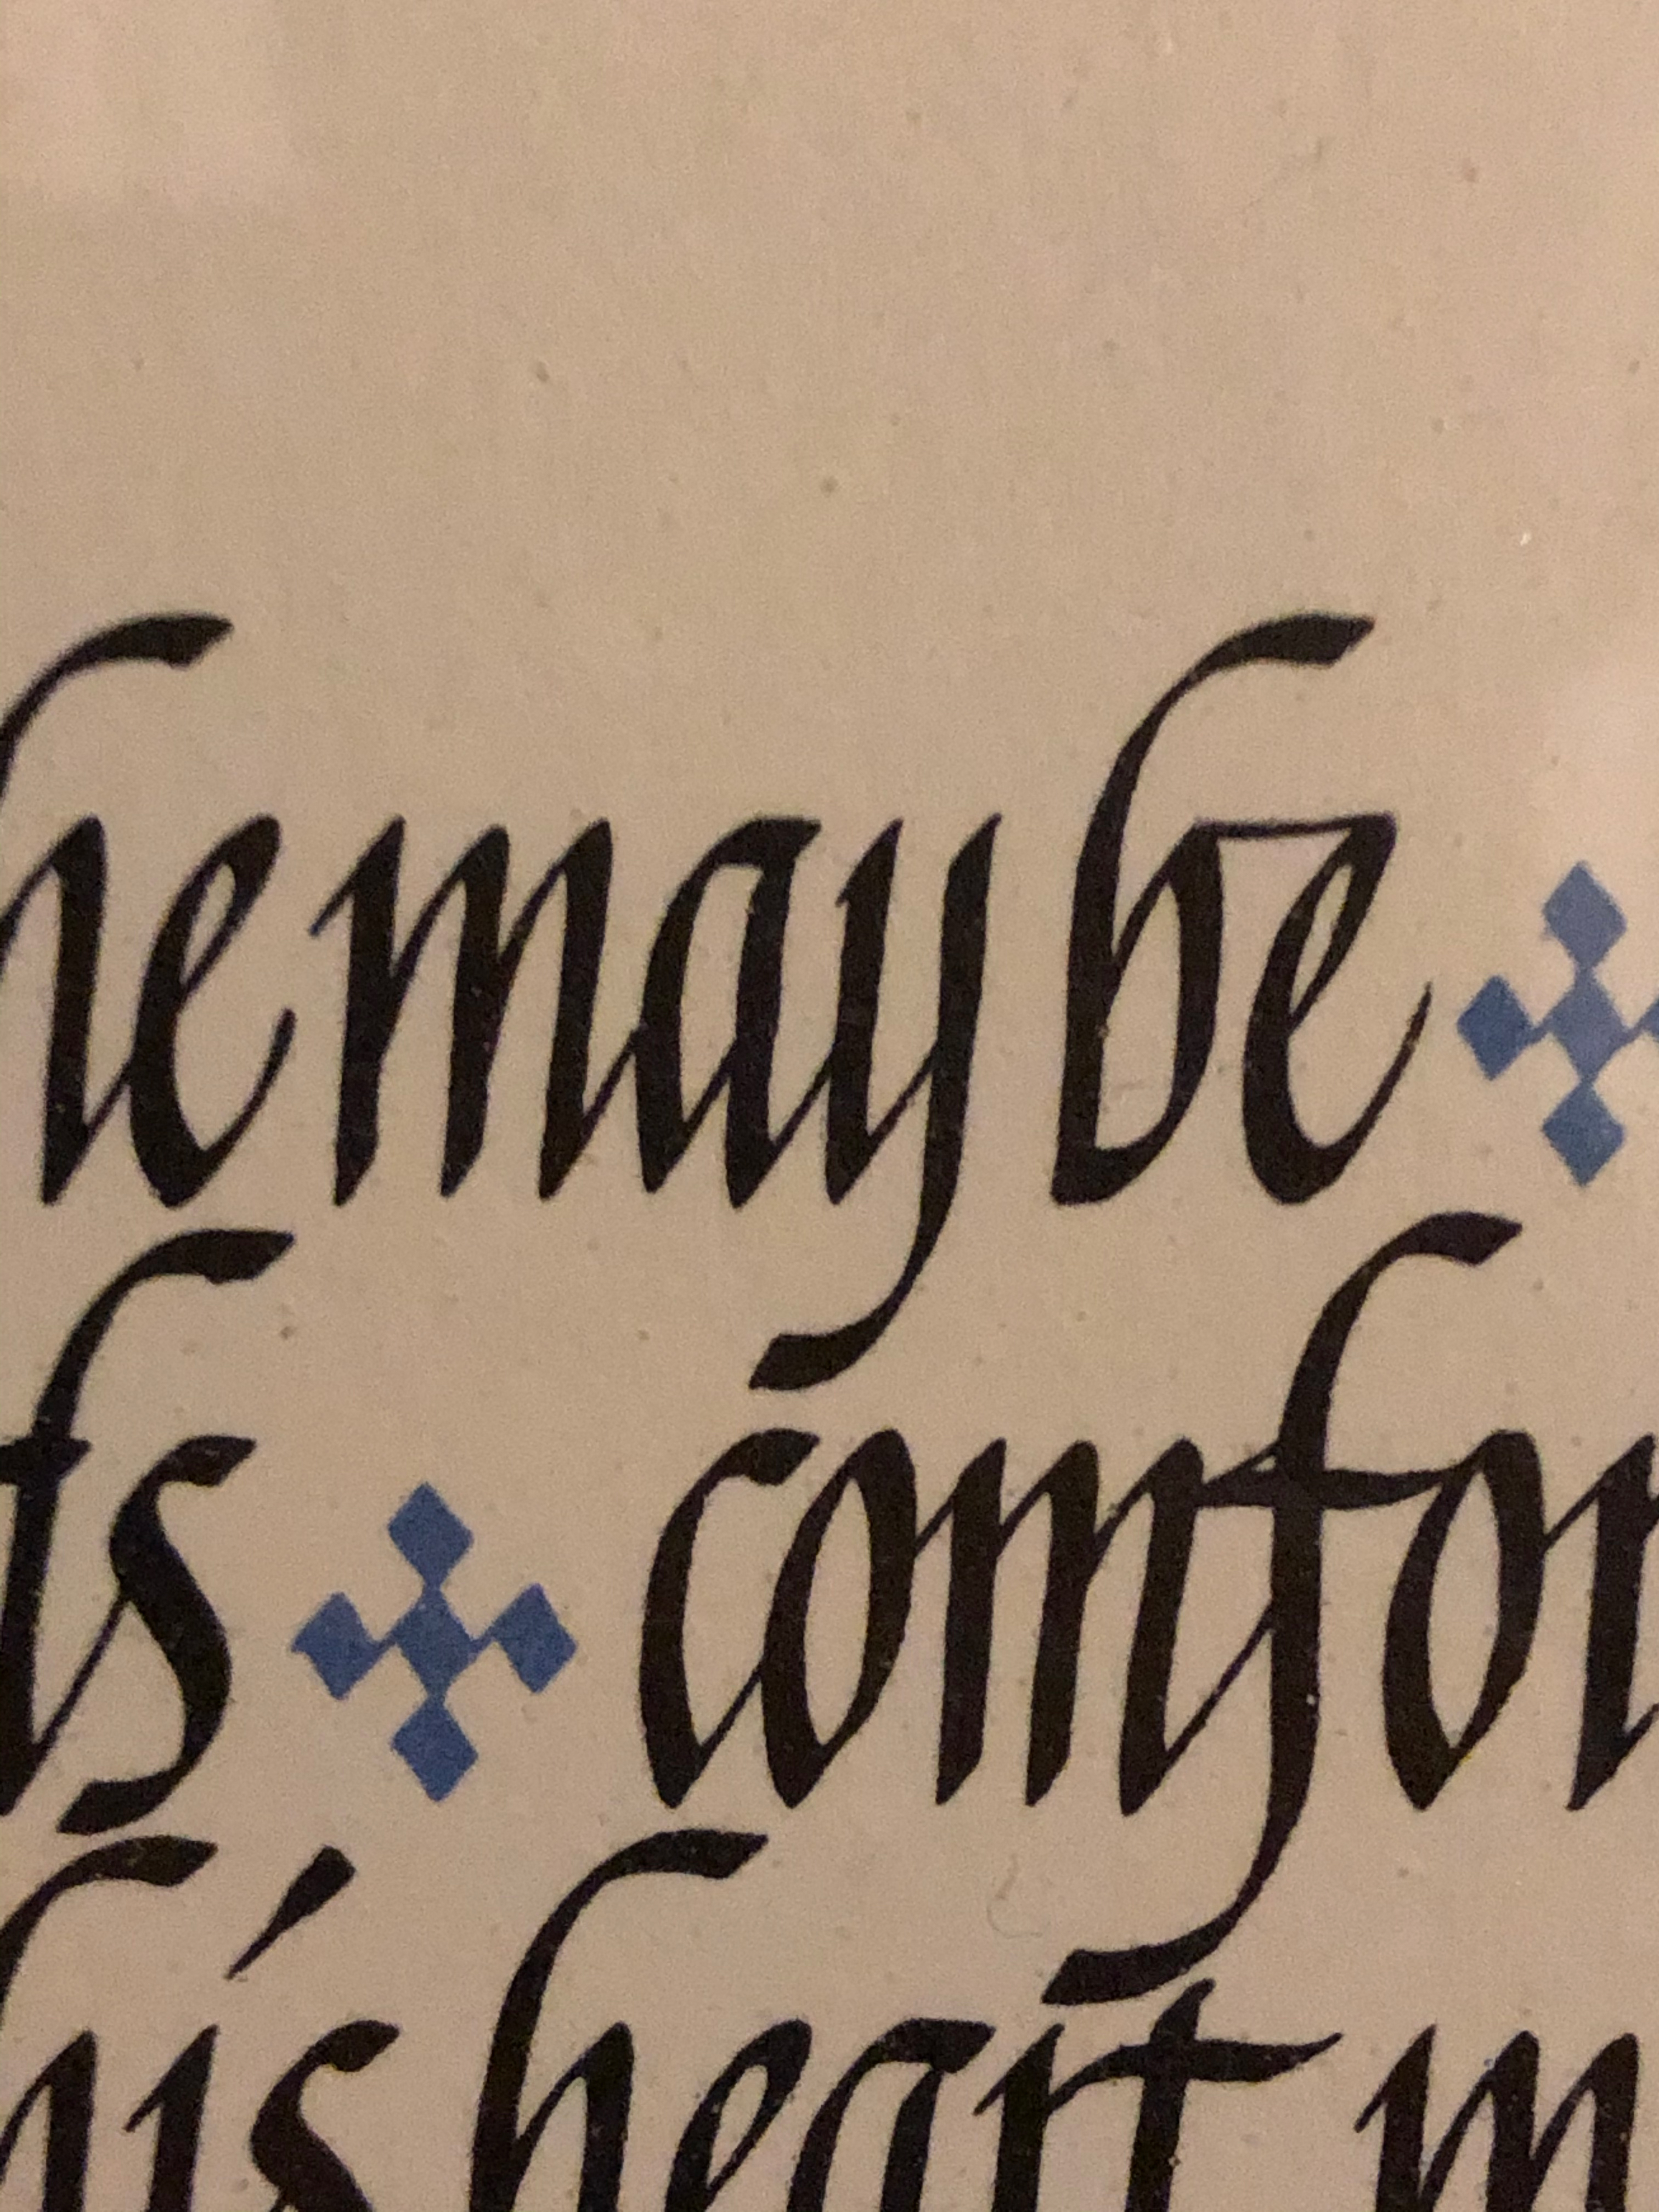 he may be
ts comfor
his heart m